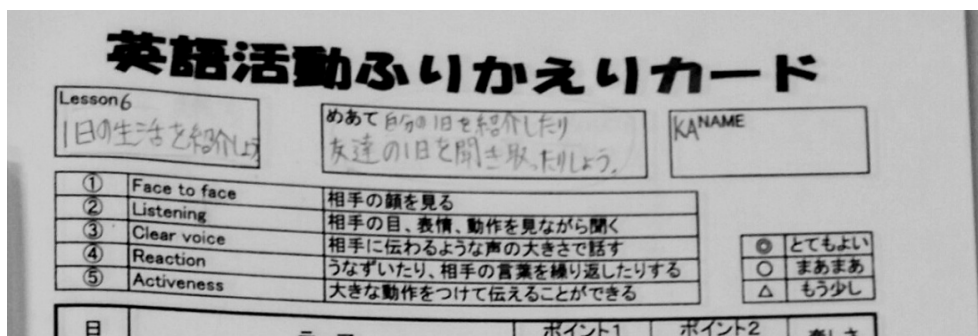 英語活動ふりかえりカード
Lesson6
1日の生活を紹介しよう
めあて 自分の1日を紹介したり
友達の1日を聞き取ったりしよう。
KANAME
① Face to face 相手の顔を見る
② Listening 相手の目、表情、動作を見ながら聞く
③ Clear voice 相手に伝わるような声の大きさで話す
④ Reaction うなずいたり、相手の言葉を繰り返したりする
⑤ Activeness 大きな動作をつけて伝えることができる
◎ とてもよい
○ まあまあ
△ もう少し
日 ポイント1 ポイント2 楽しさ